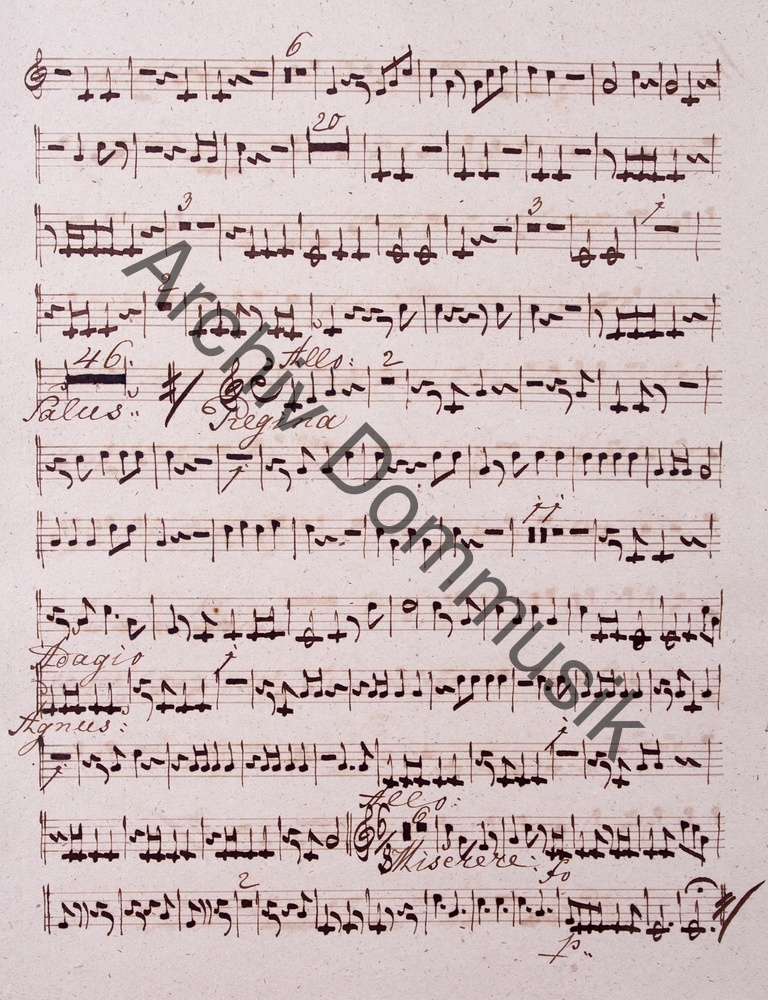 6
20
3 3 1
2
46 Allo: 2
Salus: Regina
1
11
Adagio 1
Agnus:
1 1
Allo:
6
Miserere: fo
2
p:
Archiv Dommusik